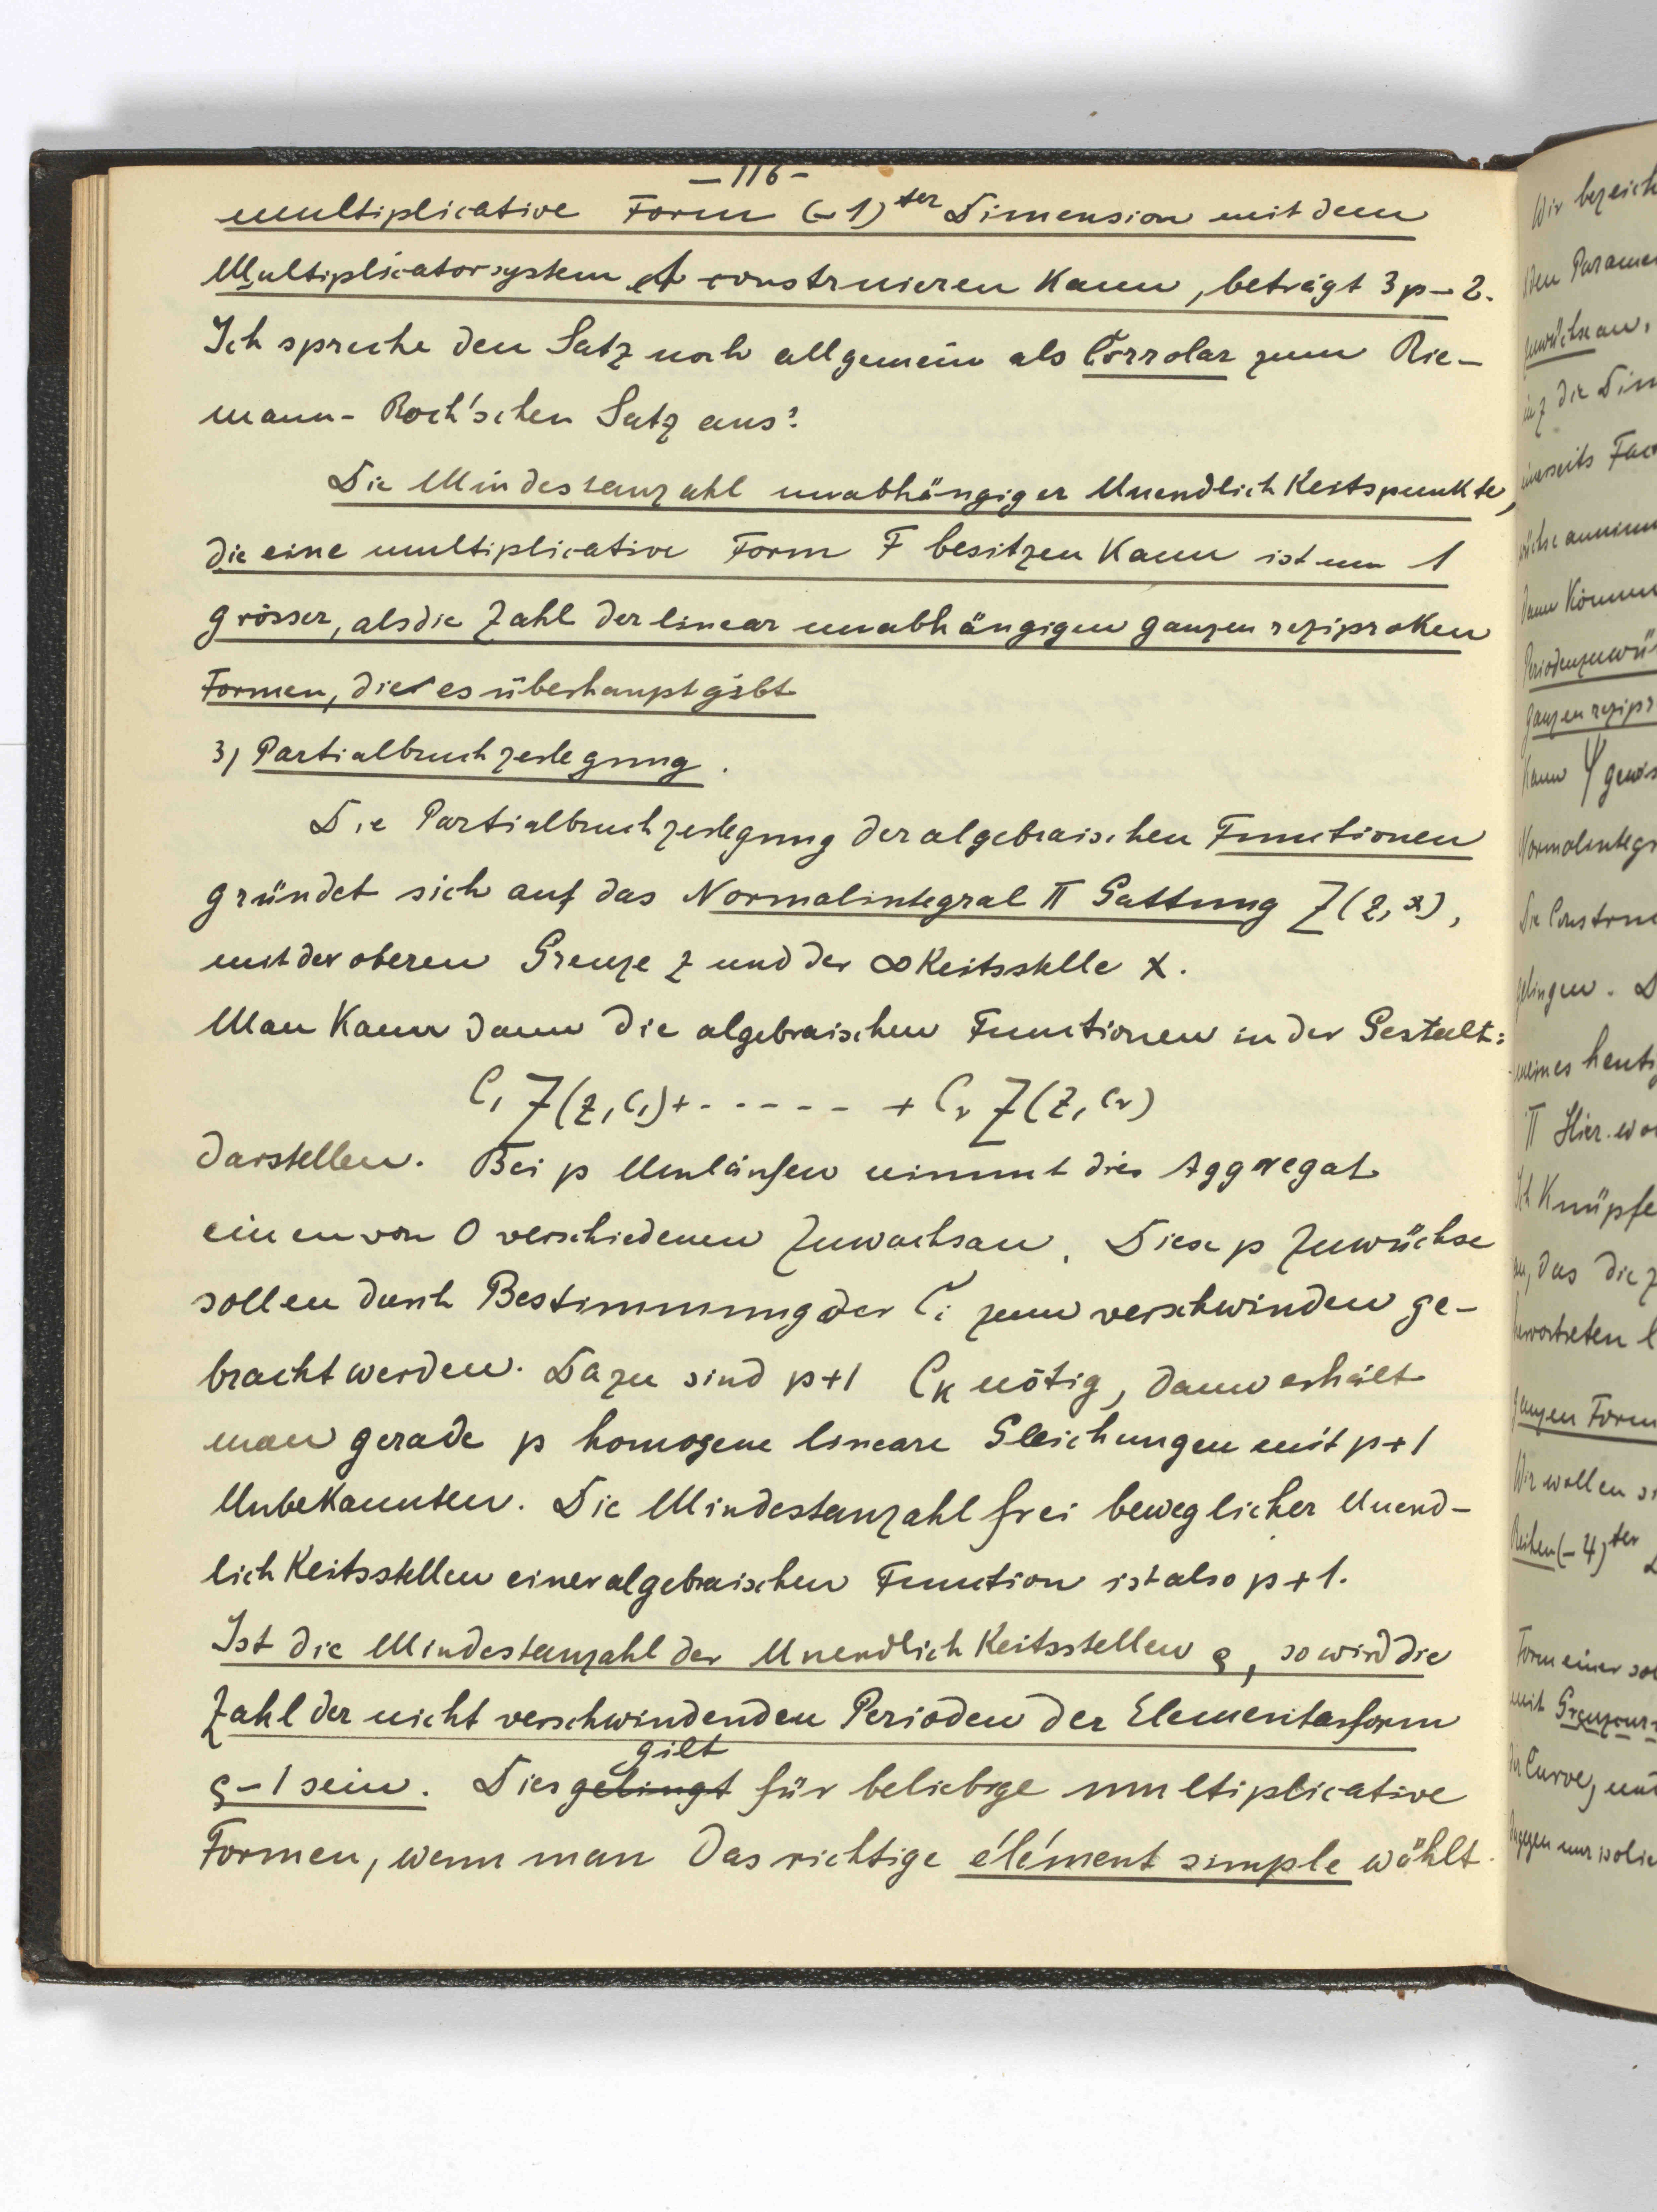 -116-
multiplicative Form (-1)ter Dimension mit dem
Multiplicatorsystem A construieren kann, beträgt 3p-2.
Ich spreche den Satz noch allgemein als Corrolar zum Rie-
mann-Roch'schen Satz aus:
Die Mindestanzahl unabhängiger Unendlichkeitspunkte,
die eine multiplicative Form F besitzen kann ist um 1
grösser, als die Zahl der linear unabhängigen ganzen reziproken
Formen, die es überhaupt gibt
3) Partialbruchzerlegung.
Die Partialbruchzerlegung der algebraischen Functionen
gründet sich auf das Normalintegral II Gattung Z(z,x),
mit der oberen Grenze z und der ∞keitsstelle x.
Man kann dann die algebraischen Functionen in der Gestalt:
C₁ Z(z,c₁)+----- + Cᵣ Z(z,cᵣ)
darstellen. Bei p Umläufen nimmt dies Aggregat
einen von 0 verschiedenen Zuwachs an. Diese p Zuwüchse
sollen durch Bestimmung der Cᵢ zum verschwinden ge-
bracht werden. Dazu sind p+1 Cₖ nötig, dann erhält
man gerade p homogene lineare Gleichungen mit p+1
Unbekannten. Die Mindestanzahl frei beweglicher Unend-
lichkeitsstellen einer algebraischen Function ist also p+1.
Ist die Mindestanzahl der Unendlichkeitsstellen ϱ, so wird die
Zahl der nicht verschwindenden Perioden der Elementarform
gilt
ϱ-1 sein. Dies gelingt für beliebige multiplicative
Formen, wenn man das richtige élément simple wählt.
Wir bezeich
den Parame
Zuwüchse an,
die Dim
Fac
annimm
dann Komm
Periodenzuwü
ganzen rezipr
kann ψ gewis
Normalintegr
Die Constru
gelingen. D
meines heuti
II Hier wo
Ich Knüpfe
an, das die z
hervortreten l
ganzen Form
Wir wollen si
Reihen (-4)ter
Form einer sol
mit Grenzcur
der Curve, und
dagegen nur solie